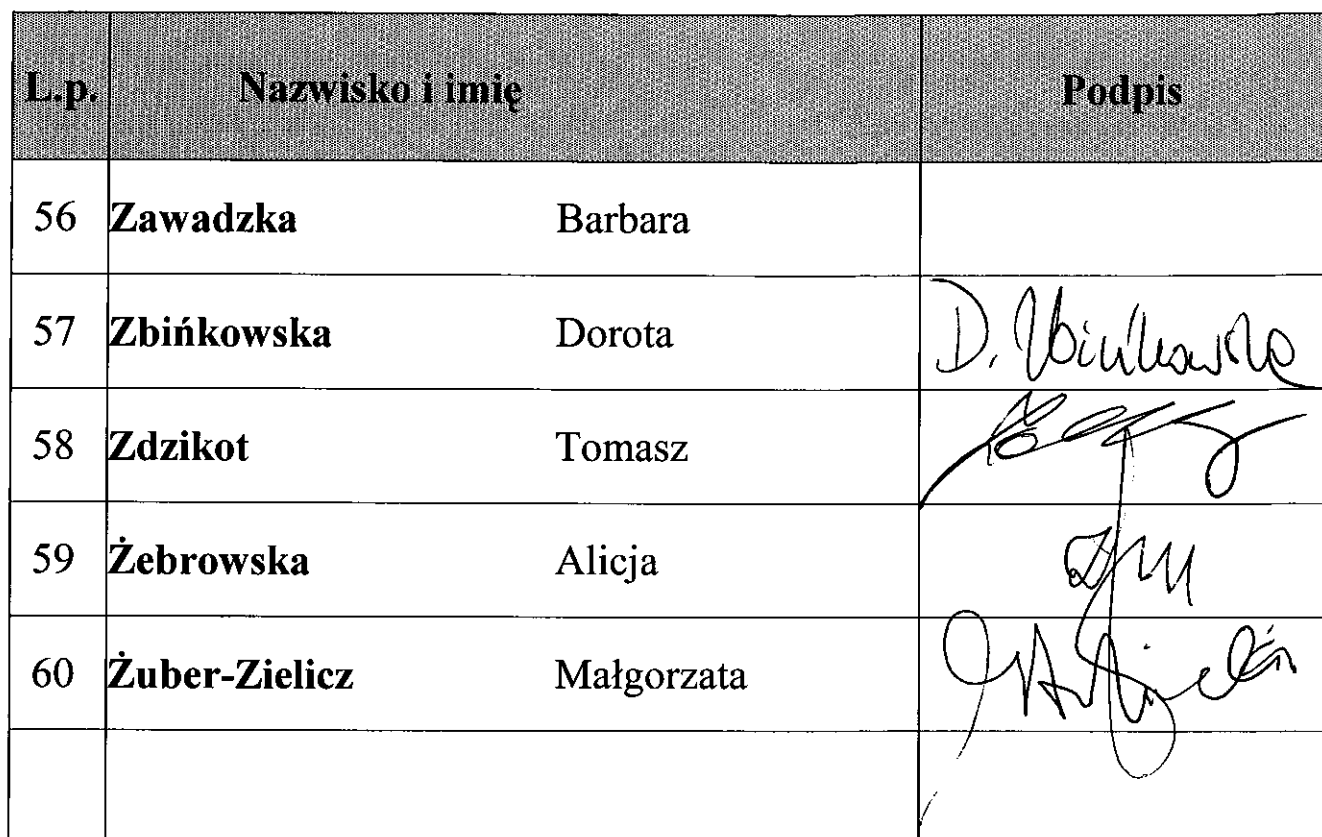 L.p. Nazwisko i imię Podpis
56 Zawadzka Barbara
57 Zbińkowska Dorota D. Zbińkowska
58 Zdzikot Tomasz
59 Żebrowska Alicja
60 Żuber-Zielicz Małgorzata